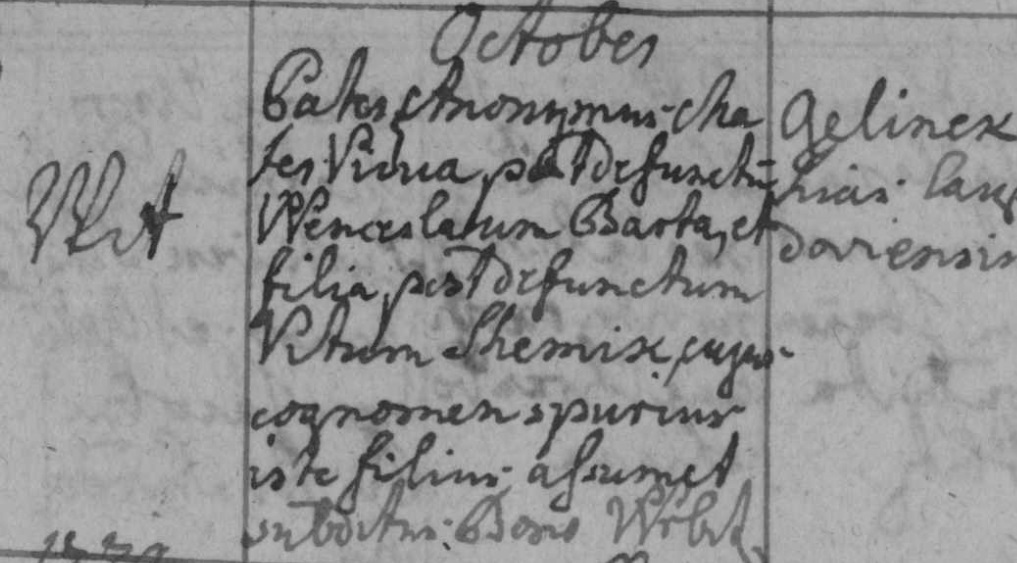 October
Pater Anonymus Ma
ter Vidua post defunctū
Wenceslaum Barta, et
filia post defunctum
Vitum Shemix, cujus
cognomen spurius
iste filius assumet
subditus Bonis
Wit
Gelinek
dariensis